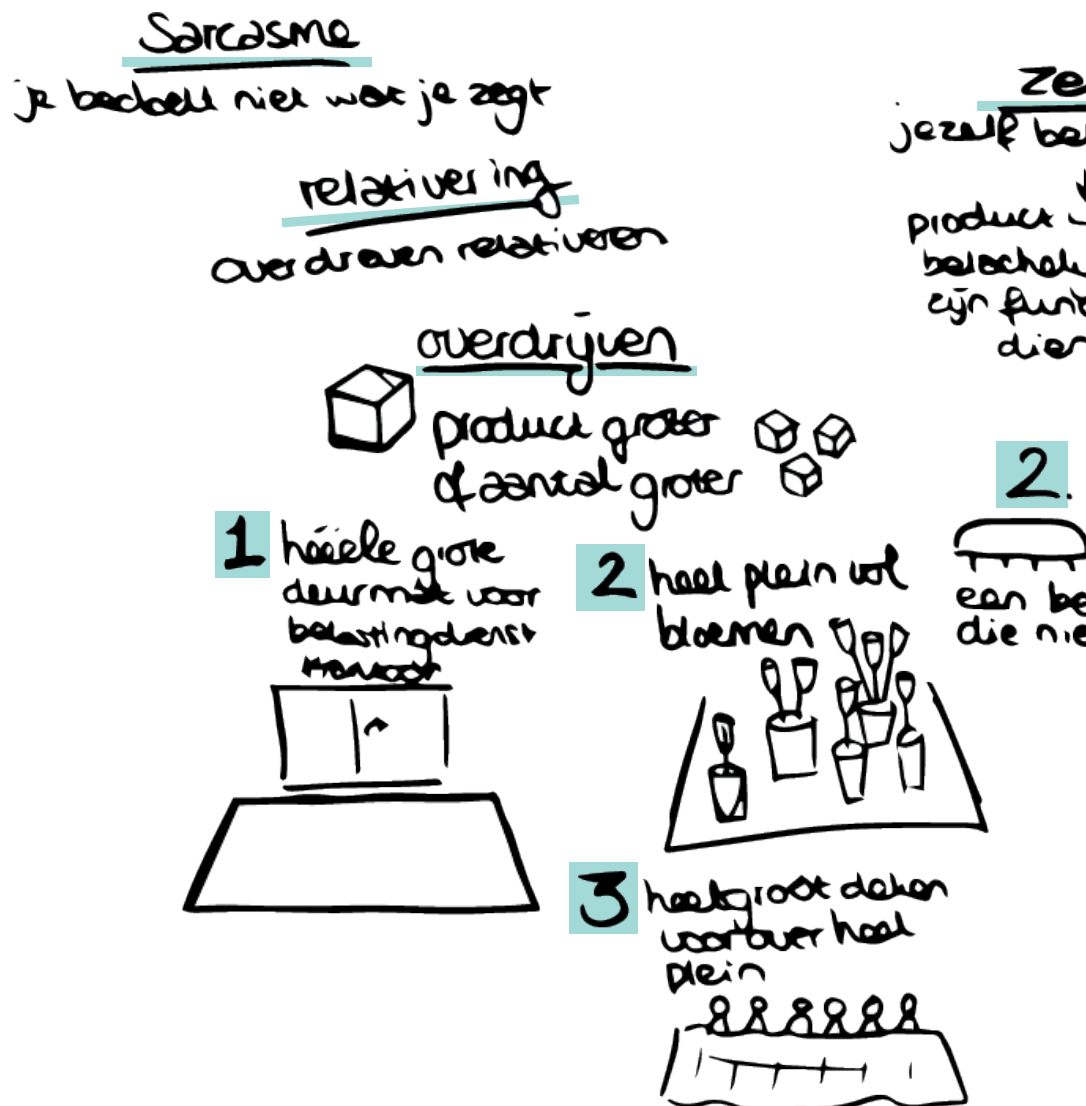 Sarcasme
je bedoelt niet wat je zegt
relativering
overdreven relativeren
overdrijven
product groter
of aantal groter
1 hééële grote
deurmat voor
belastingdienst
kantoor
2 heel plein vol
bloemen
3 heel groot deken
voor over heel
plein
ze
jezelf be
product
belachel
zijn fun
dien
2.
een be
die nie